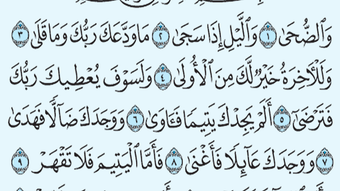 وَٱلضُّحَىٰ ١ وَٱلَّيۡلِ إِذَا سَجَىٰ ٢ مَا وَدَّعَكَ رَبُّكَ وَمَا قَلَىٰ ٣
وَلَلۡأٓخِرَةُ خَيۡرٞ لَّكَ مِنَ ٱلۡأُولَىٰ ٤ وَلَسَوۡفَ يُعۡطِيكَ رَبُّكَ
فَتَرۡضَىٰٓ ٥ أَلَمۡ يَجِدۡكَ يَتِيمٗا فَـَٔاوَىٰ ٦ وَوَجَدَكَ ضَآلّٗا فَهَدَىٰ
٧ وَوَجَدَكَ عَآئِلٗا فَأَغۡنَىٰ ٨ فَأَمَّا ٱلۡيَتِيمَ فَلَا تَقۡهَرۡ ٩